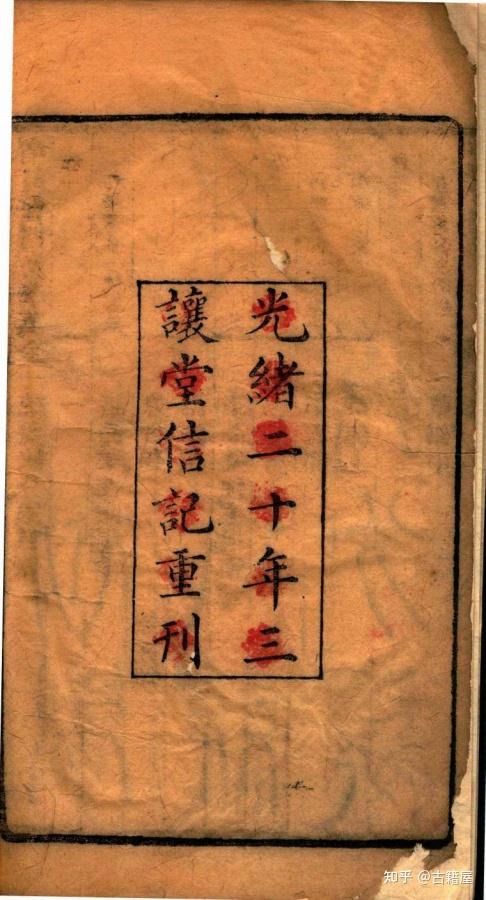 光緒二十年三
讓堂信記重刊
知乎 @古籍屋